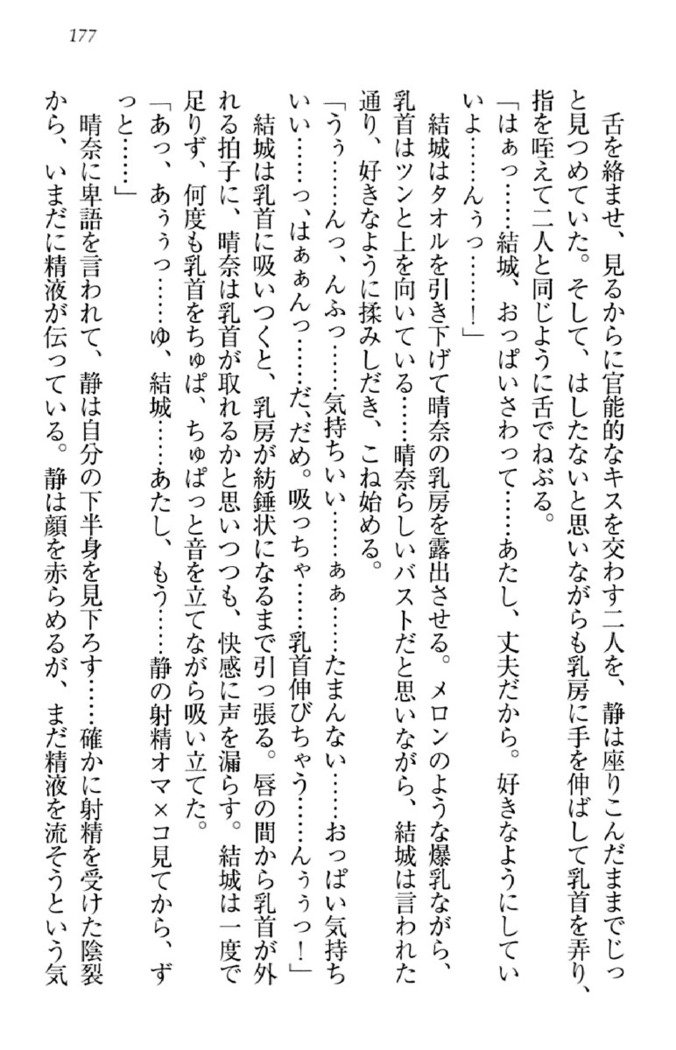 177
舌を絡ませ、見るからに官能的なキスを交わす二人を、静は座りこんだままでじっ
と見つめていた。そして、はしたないと思いながらも乳房に手を伸ばして乳首を弄り、
指を咥えて二人と同じように舌でねぶる。
「はぁっ……結城、おっぱいさわって……あたし、丈夫だから。好きなようにしてい
いよ……んぅっ……！」
結城はタオルを引き下げて晴奈の乳房を露出させる。メロンのような爆乳ながら、
乳首はツンと上を向いている……晴奈らしいバストだと思いながら、結城は言われた
通り、好きなように揉みしだき、こね始める。
「うぅ……んっ、んふっ……気持ちいい……ぁぁ……たまんない……おっぱい気持ち
いい……っ、はぁぁんっ……だ、だめ。吸っちゃ……乳首伸びちゃう……んぅぅっ！」
結城は乳首に吸いつくと、乳房が紡錘状になるまで引っ張る。唇の間から乳首が外
れる拍子に、晴奈は乳首が取れるかと思いつつも、快感に声を漏らす。結城は一度で
足りず、何度も乳首をちゅぱ、ちゅぱっと音を立てながら吸い立てた。
「あっ、あぅぅっ……ゆ、結城……あたし、もう……静の射精オマ×コ見てから、ず
っと……」
晴奈に卑語を言われて、静は自分の下半身を見下ろす……確かに射精を受けた陰裂
から、いまだに精液が伝っている。静は顔を赤らめるが、まだ精液を流そうという気